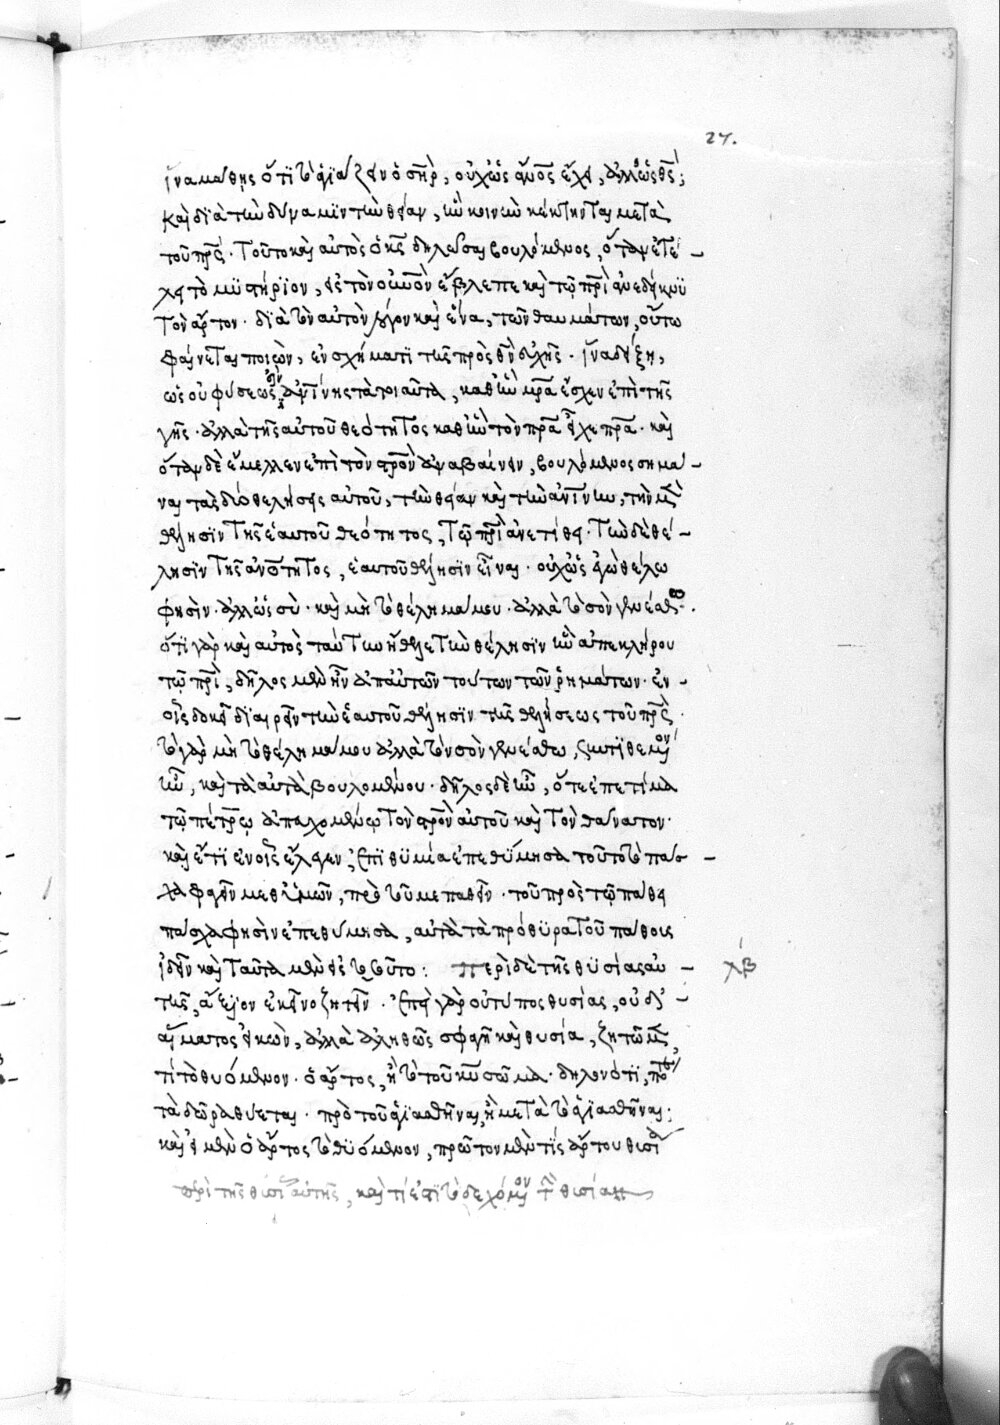 27.
ἵνα μάθῃς ὅτι τὸ ἁγιάζειν ὁ σηρ, οὐχ ὡς ανος ἔχει, ἀλλ' ὡς θς;
καὶ διὰ τὴν δύναμιν τὴν θείαν, ἣν κοινὴν κέκτηνται μετὰ
τοῦ πρς. τοῦτο καὶ αὐτὸς ὁ κς δηλῶσαι βουλόμενος, ὅταν ἐτέ-
λει τὸ μυστήριον, εἰς τὸν οὐνον ἔβλεπε καὶ τῷ πρι ἀνεδείκνυ
τὸν ἄρτον. διὰ τὸν αὐτὸν λόγον καὶ ἔνια, τῶν θαυμάτων, οὕτω
φαίνεται ποιῶν, ἐν σχήματι τῆς πρὸς θν εὐχῆς. ἵνα δείξῃ,
ὡς οὐ φύσεως ἦν ἀνίνης τὰ τοιαῦτα, καθ' ἣν μρα ἔσχεν ἐπὶ τῆς
γῆς. ἀλλὰ τῆς αὐτοῦ θεότητος καθ' ἣν τὸν πρα εἶχε πρα. καὶ
ὅταν δὲ ἔμελλεν ἐπὶ τὸν στρον ἀναβαίνειν, βουλόμενος σημᾶ-
ναι τὰς δύο θελήσεις αὐτοῦ, τὴν θείαν καὶ τὴν ανίνην, τὴν μὲν
θέλησιν τῆς ἑαυτοῦ θεότητος, τῷ πρι ἀνετίθει. τὴν δὲ θέ-
λησιν τῆς ανοτητος, ἑαυτοῦ θέλησιν εἶναι. οὐχ ὡς ἐγὼ θέλω
φησὶν. ἀλλ' ὡς σὺ. καὶ μὴ τὸ θέλημά μου. ἀλλὰ τὸ σὸν γενέσθω.
ὅτι γὰρ καὶ αὐτὸς ταύτην ἤθελε τὴν θέλησιν ἣν ἀπεκλήρου
τῷ πρι, δῆλος μὲν ἦν ἀπ' αὐτῶν τούτων τῶν ῥημάτων. ἐν
οἷς δοκεῖ διαιρεῖν τὴν ἑαυτοῦ θέλησιν τῆς θελήσεως τοῦ πρς.
τὸ γὰρ μὴ τὸ θέλημά μου ἀλλὰ τὸ σὸν γενέσθω, συντιθεμένου
ἦν, καὶ τὰ αὐτὰ βουλομένου. δῆλος δὲ ἦν, ὅτε ἐπετίμα
τῷ πέτρῳ ἀπευχομένῳ τὸν στρον αὐτοῦ καὶ τὸν θάνατον.
καὶ ἔτι ἐν οἷς ἔλεγεν, ἐπιθυμίᾳ ἐπεθύμησα τοῦτο τὸ πάσ-
χα φαγεῖν μεθ' ὑμῶν, πρὸ τοῦ με παθεῖν. τοῦ πρὸς τῷ πάθει
πάσχα φησὶν ἐπεθύμησα, αὐτὰ τὰ πρόθυρα τοῦ πάθους
ἰδεῖν καὶ ταῦτα μὲν εἰς τοῦτο: Περὶ δὲ τῆς θυσίας αὐ-
λβ
τῆς, ἄξιον ἐκεῖνο ζητεῖν. ἐπεὶ γὰρ οὐ τύπος θυσίας, οὐδ'
αἵματος εἰκὼν, ἀλλὰ ἀληθῶς σφαγὴ καὶ θυσία, ζητῶμεν,
τί τὸ θυόμενον. ὁ ἄρτος, ἢ τὸ τοῦ κυ σῶμα. δηλονότι, πότε
τὰ δῶρα θύεται. πρὸ τοῦ ἁγιασθῆναι, ἢ μετὰ τὸ ἁγιασθῆναι;
καὶ εἰ μὲν ὁ ἄρτος τὸ θυόμενον, πρῶτον μὲν τίς ἄρτου θυσία
περὶ τῆς θυσίας αὐτῆς, καὶ τί ἐστι τὸ δεχόμενον τὴν θυσίαν